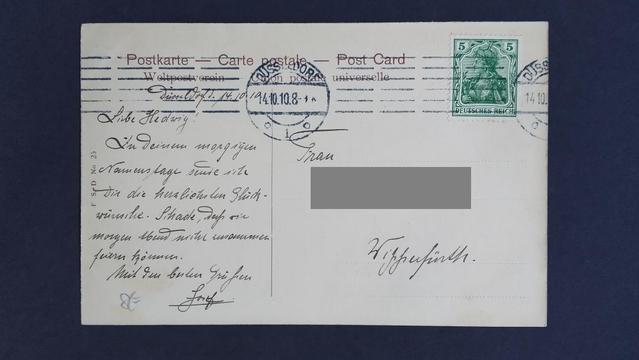 Postkarte — Carte postale — Post Card
Weltpostverein — Union postale universelle
Düsseldorf, 14.10.10.
DÜSSELDORF
14.10.10.8-
1
5 5
DEUTSCHES REICH
DÜSS
14.10.
F S D No 25
Liebe Hedwig!
In Deinem morgigen
Namenstage sende ich
Dir die herzlichsten Glück-
wünsche. Schade, daß wir
morgen Abend nicht zusammen
feiern können.
Mit den besten Grüßen
Josef
Frau
Wipperfürth.